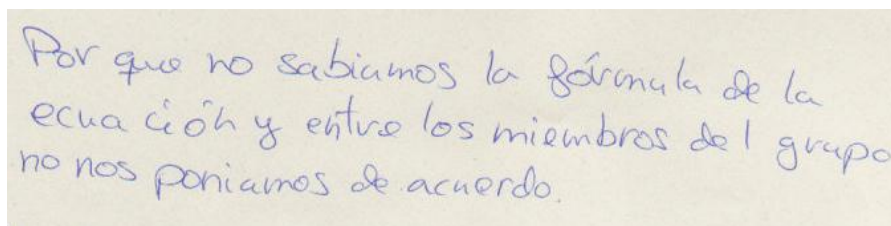 Por que no sabiamos la fórmula de la
ecuación y entre los miembros del grupo
no nos poniamos de acuerdo.